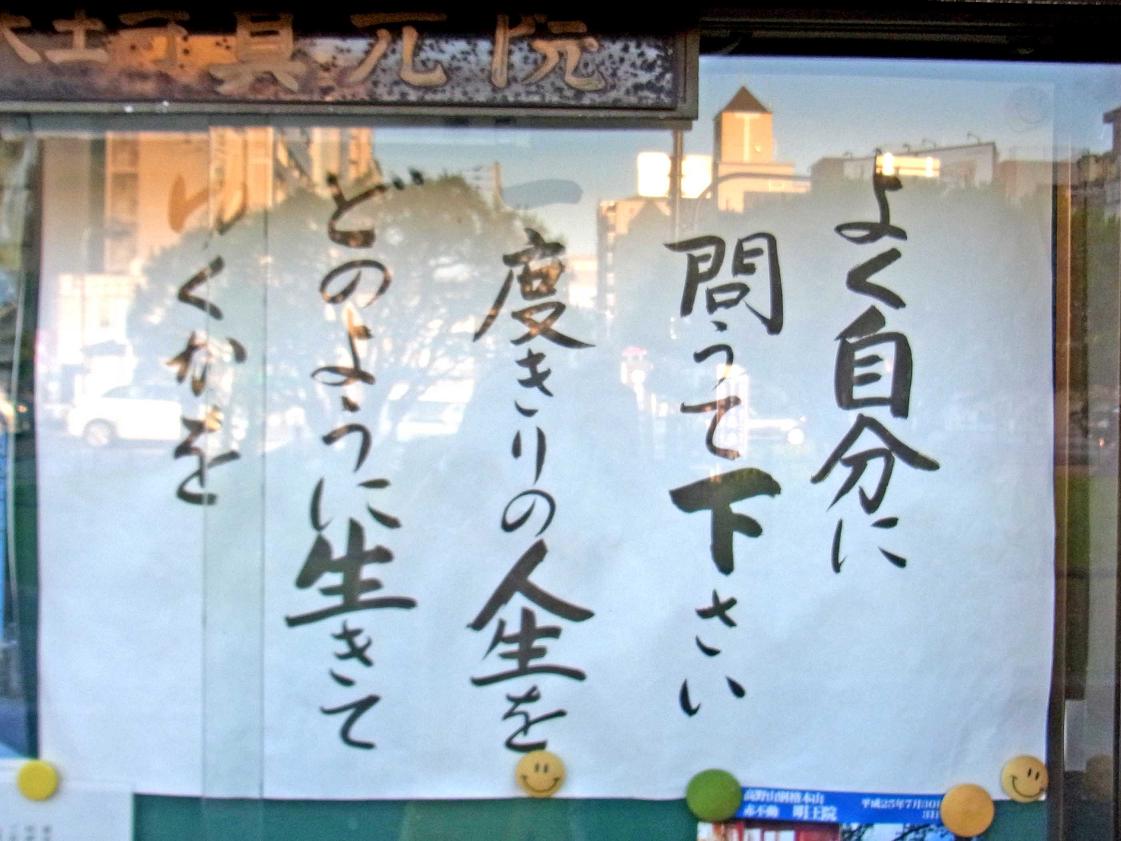 元院
よく自分に
問うて下さい
一度きりの人生を
どのように生きて
いくかを
高野山別格本山
赤不動 明王院
平成25年7月30